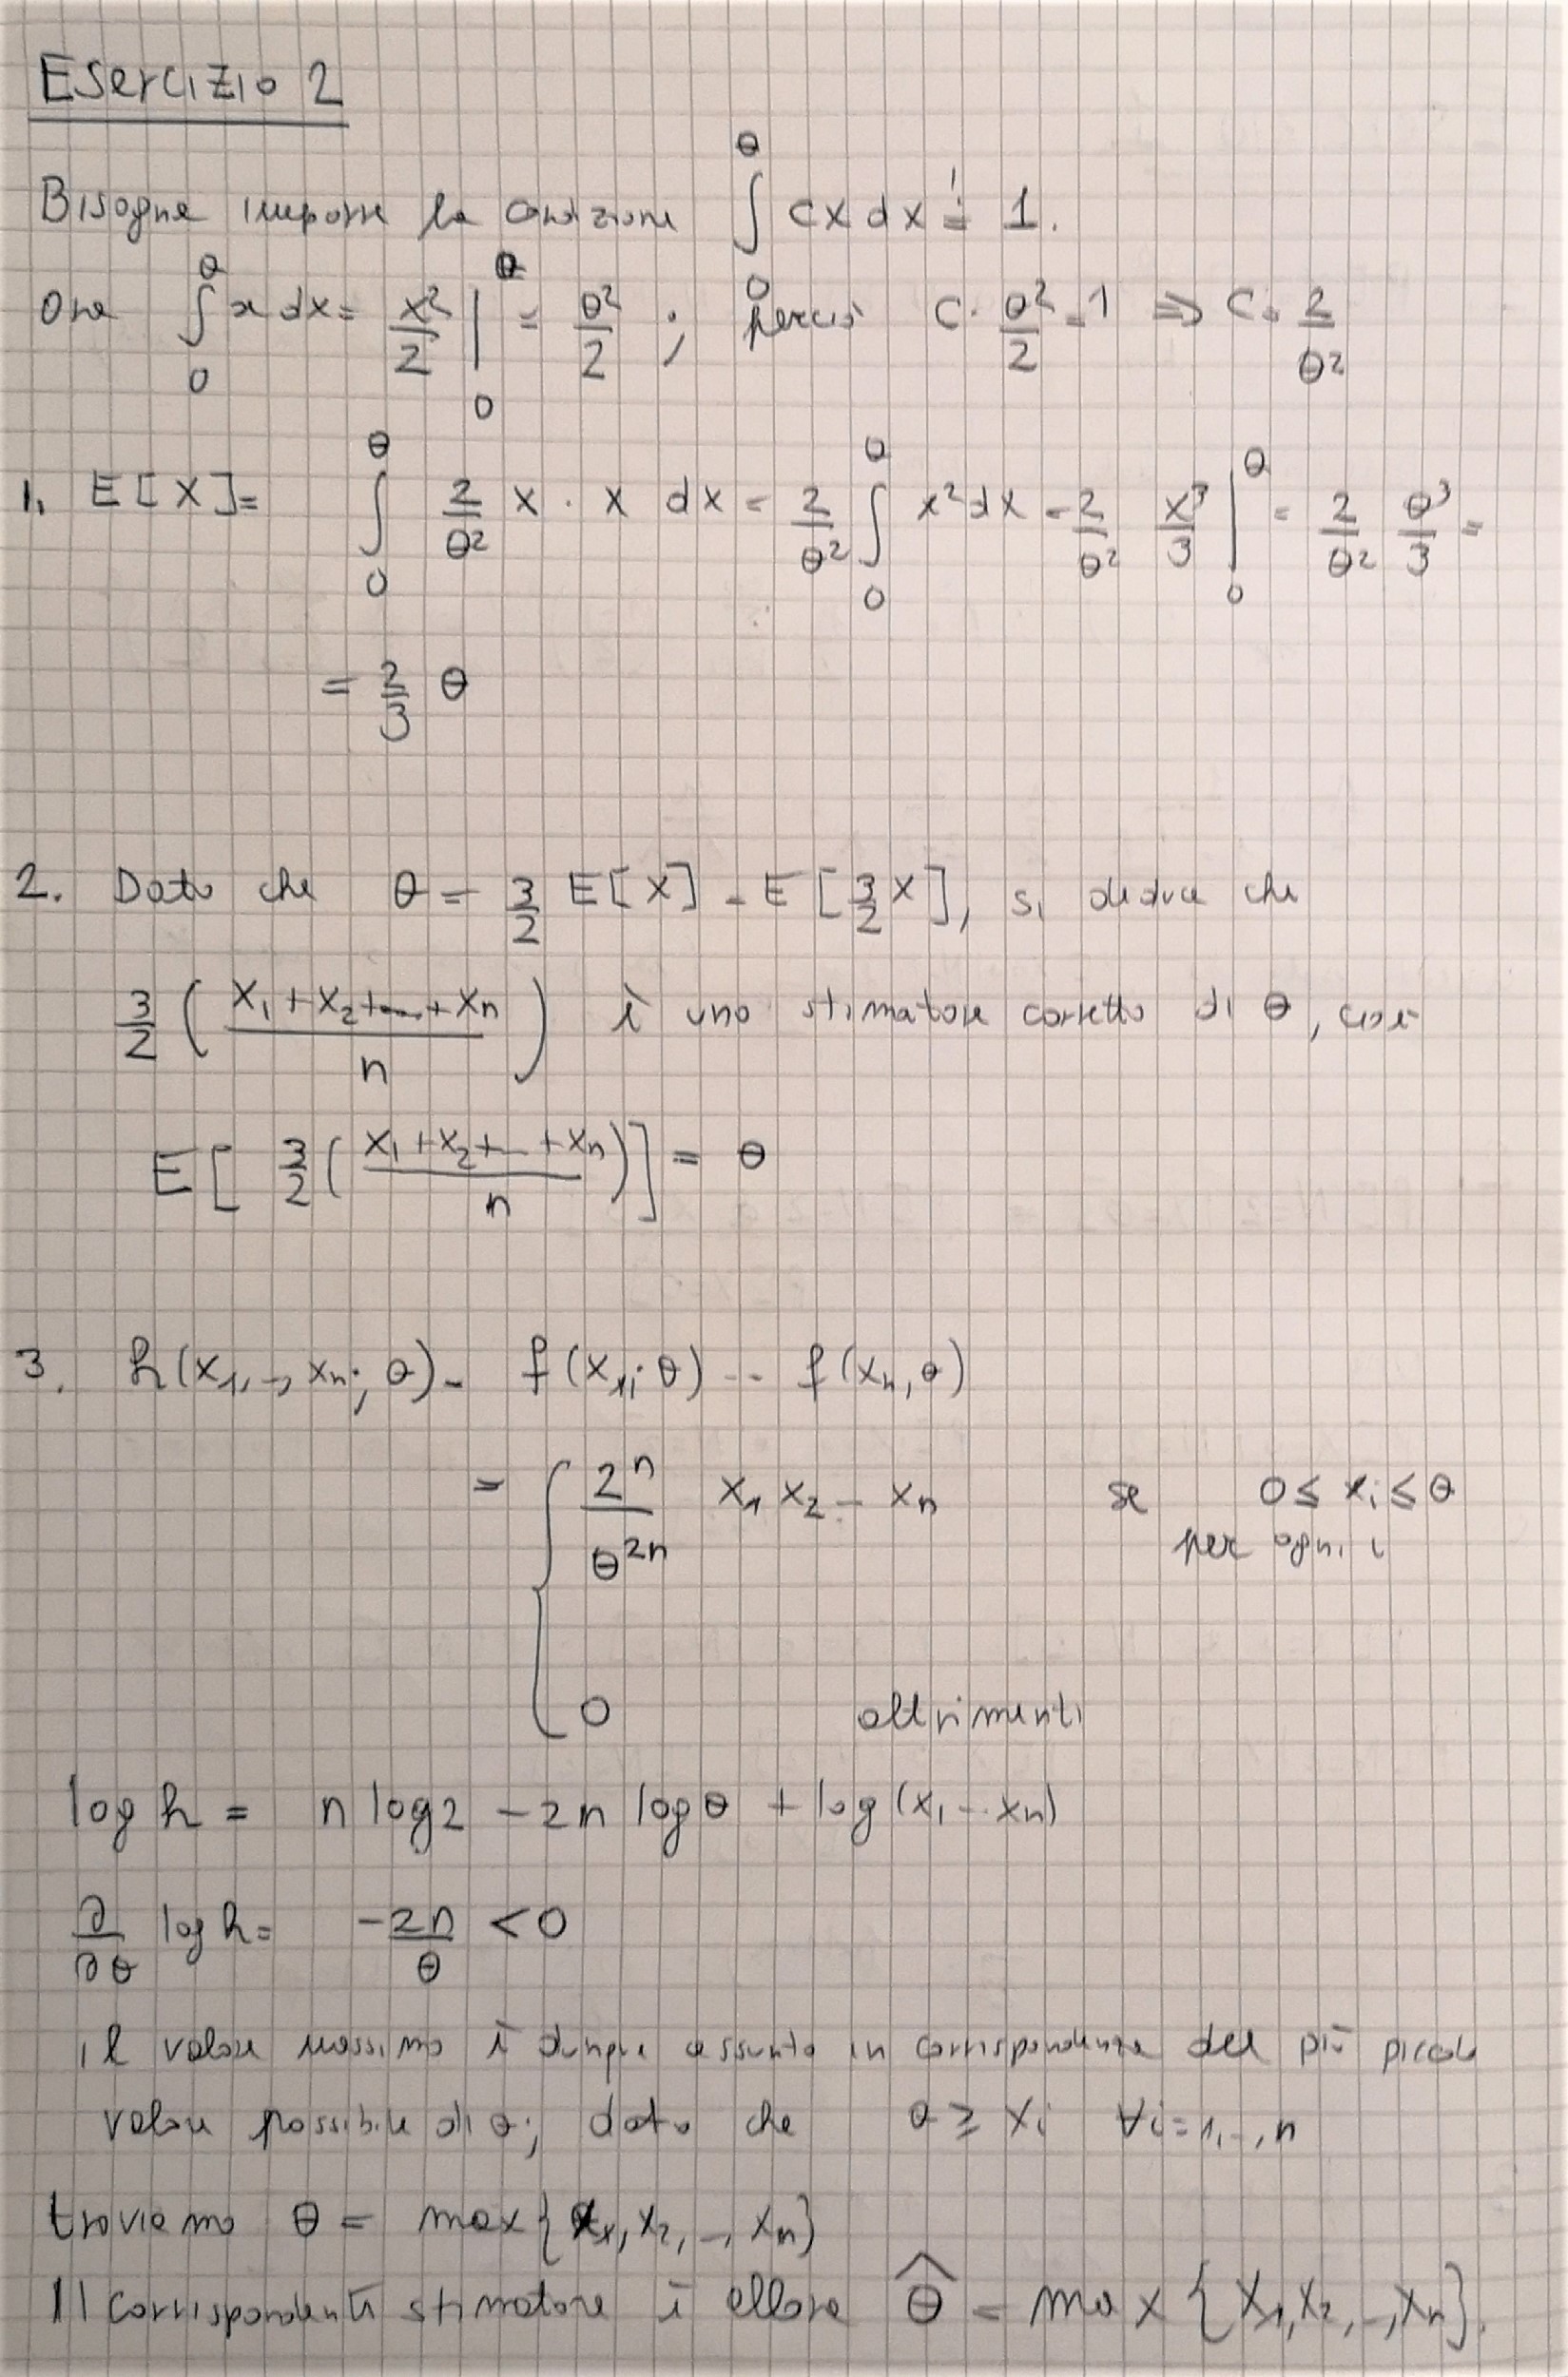 Esercizio 2
Bisogna imporre la condizione ∫₀^θ cx dx =! 1.
Ora ∫₀^θ x dx = x²/2 |₀^θ = θ²/2 ; perciò c · θ²/2 = 1 ⇒ c = 2/θ²
1. E[X] = ∫₀^θ 2/θ² x · x dx = 2/θ² ∫₀^θ x² dx = 2/θ² x³/3 |₀^θ = 2/θ² θ³/3 =
= 2/3 θ
2. Dato che θ = 3/2 E[X] = E[3/2 X], si deduce che
3/2 ( (X₁ + X₂ + ... + Xₙ)/n ) è uno stimatore corretto di θ, cioè
E[ 3/2 ( (X₁ + X₂ + ... + Xₙ)/n ) ] = θ
3. h(x₁, .., xₙ; θ) = f(x₁; θ) ... f(xₙ, θ)
= { 2ⁿ/θ²ⁿ x₁ x₂ ... xₙ se 0 ≤ xᵢ ≤ θ
per ogni i
0 altrimenti
log h = n log 2 - 2n log θ + log (x₁ ... xₙ)
∂/∂θ log h = -2n/θ < 0
il valore massimo è dunque assunto in corrispondenza del più piccolo
valore possibile di θ; dato che θ ≥ xᵢ ∀i = 1, .., n
troviamo θ = max{x₁, x₂, .., xₙ}
Il corrispondente stimatore è allora θ̂ = max{X₁, X₂, .., Xₙ}.